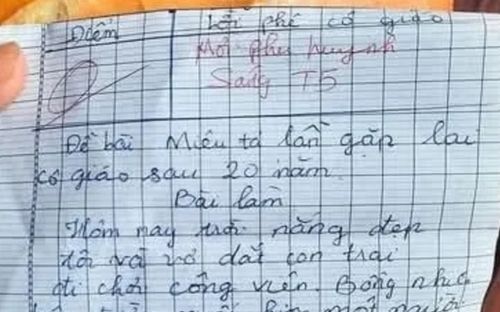 Điểm
Lời phê cô giáo
Mời phụ huynh
Sáng T5
Đề bài Miêu tả lần gặp lại
cô giáo sau 20 năm
Bài làm
Hôm nay trời nắng đẹp
tôi và vợ dắt con trai
đi chơi công viên. Bỗng
một người